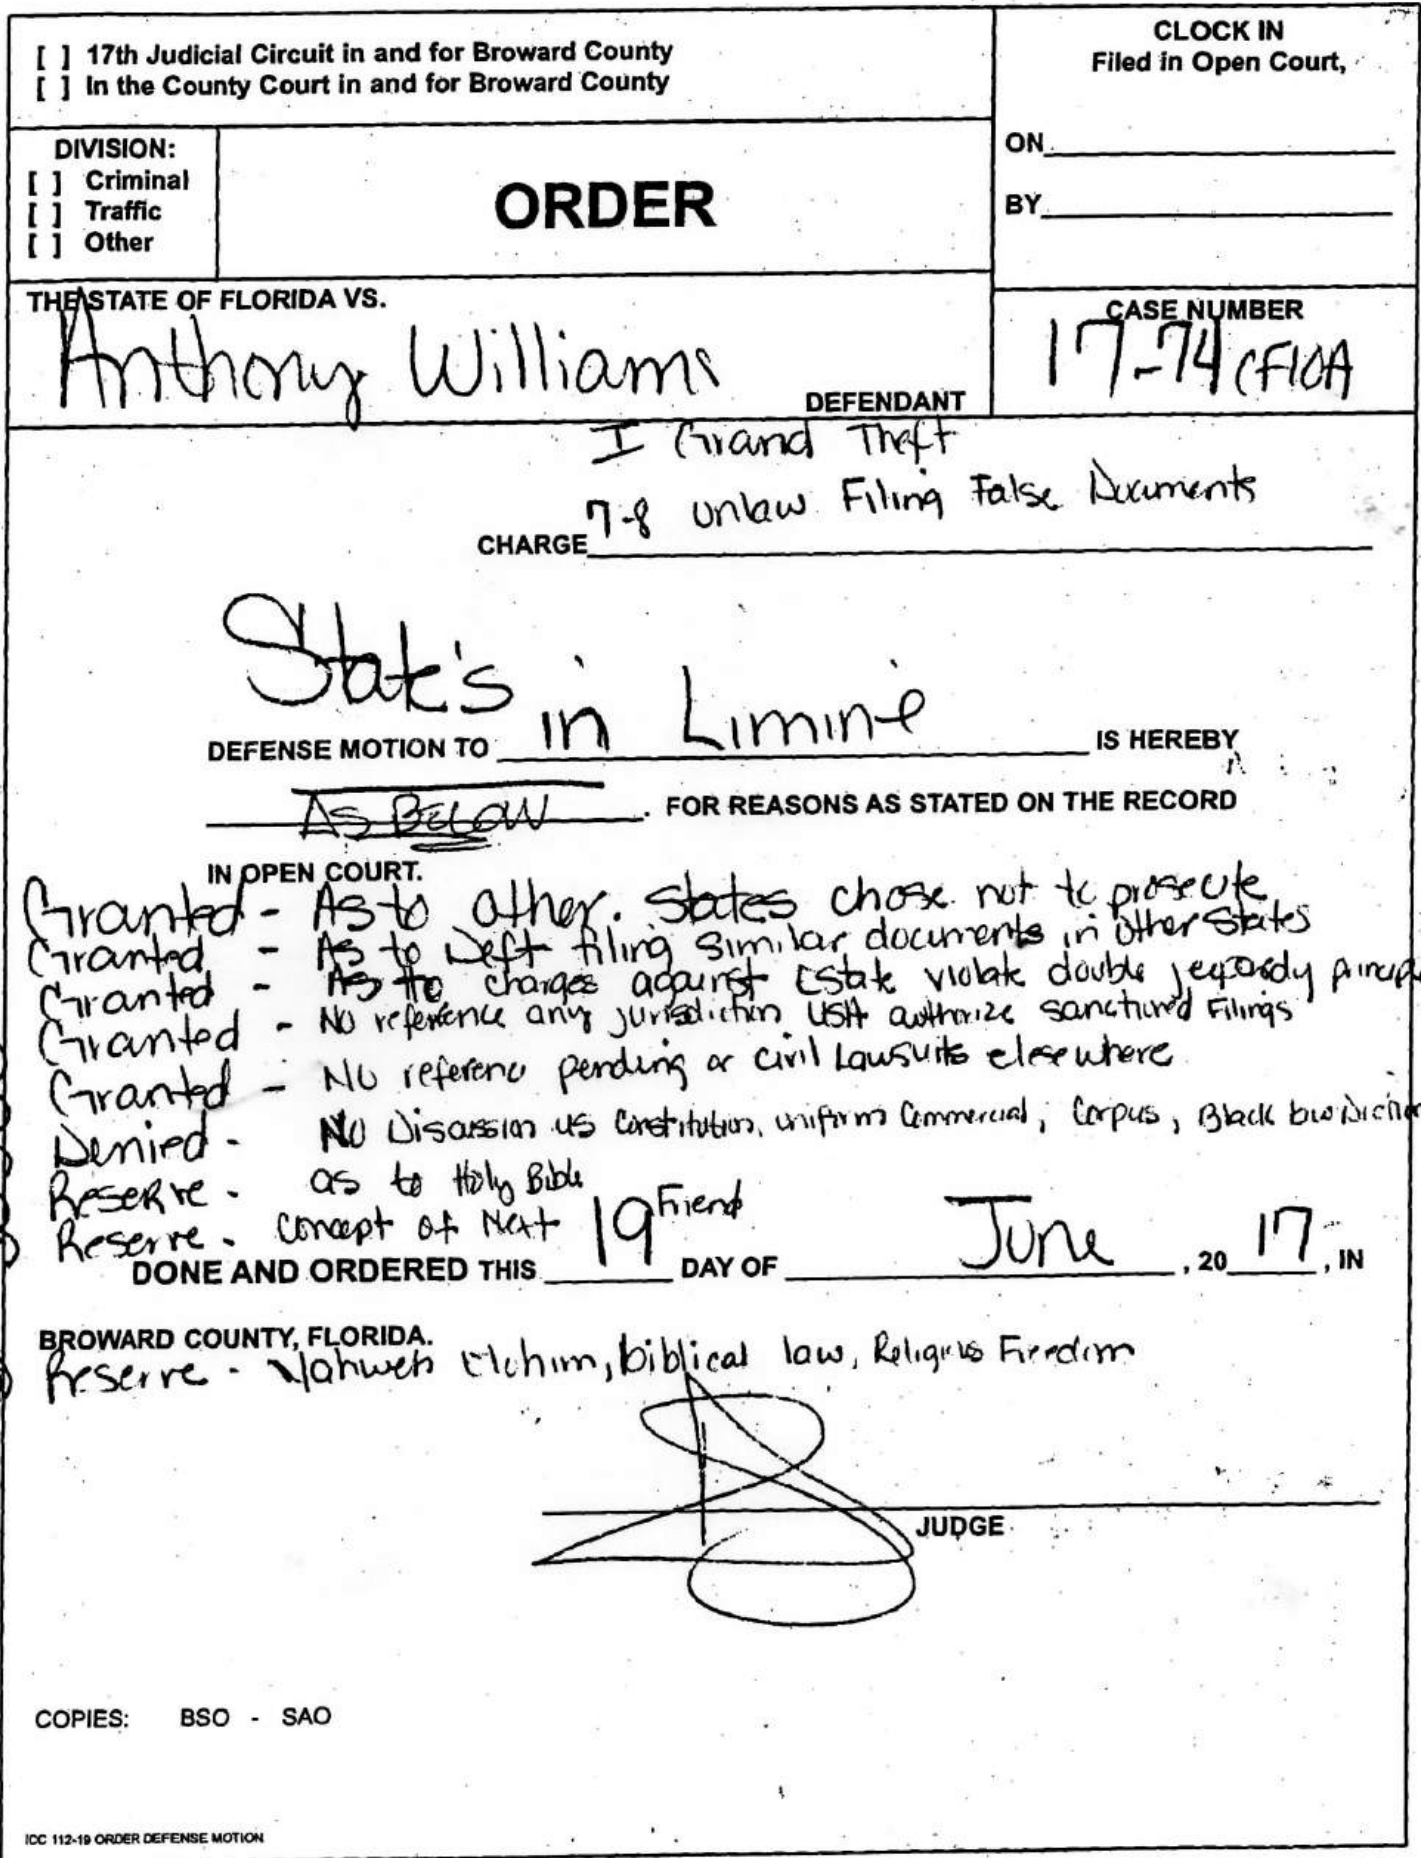 [ ] 17th Judicial Circuit in and for Broward County
[ ] In the County Court in and for Broward County
CLOCK IN
Filed in Open Court,
ON
BY
DIVISION:
[ ] Criminal
[ ] Traffic
[ ] Other
ORDER
THE STATE OF FLORIDA VS.
Anthony Williams
DEFENDANT
CASE NUMBER
17-74 CF10A
I Grand Theft
7-8 unlaw Filing False Documents
CHARGE
State's
DEFENSE MOTION TO in Limine IS HEREBY
As Below. FOR REASONS AS STATED ON THE RECORD
IN OPEN COURT.
Granted - As to other states chose not to prosecute
Granted - As to Deft filing similar documents in other States
Granted - As to charges against Estate violate double jeopardy
Granted - No reference any jurisdiction USA authorize sanctioned Filings
Granted - No reference pending or civil Lawsuits elsewhere
Denied - No Discussion US Constitution, uniform Commercial, Corpus, Black
Reserve - as to Holy Bible
Reserve - Concept of Next Friend
DONE AND ORDERED THIS 19 DAY OF June, 20 17, IN
BROWARD COUNTY, FLORIDA.
Reserve - Yahweh Elohim, biblical law, Religius Freedom
JUDGE
COPIES: BSO - SAO
ICC 112-19 ORDER DEFENSE MOTION